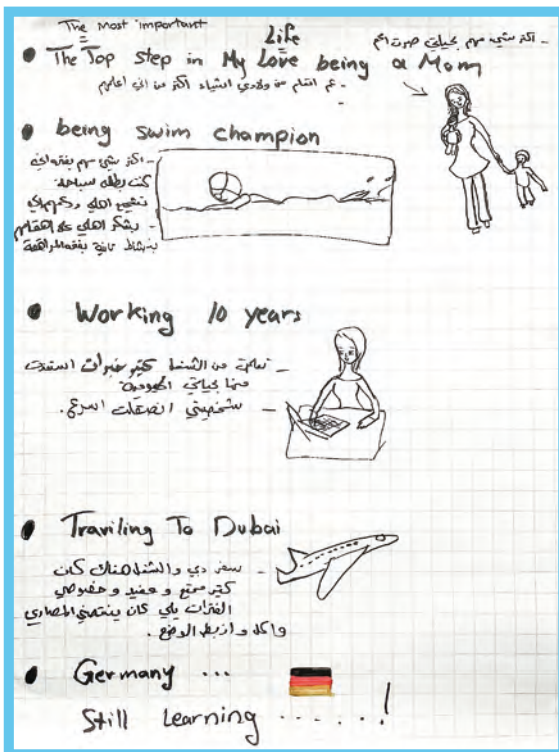 The most important
Life
• The Top step in My Love being a Mom
- اكثر شي مهم بحياتي صرت ام
- عم اتعلم من ولادي اشياء اكثر من اني اعلمهم
• being swim champion
- اكثر شي مهم
كنت بطلة سباحة
تشجيع اهلي
- بشكر اهلي
• Working 10 years
- تعلمت من الشغل كتير خبرات استفدت
منها بحياتي
- شخصيتي انصقلت اسرع.
• Traviling To Dubai
- سفر دبي والشغل هناك كان
كتير ممتع و مفيد و خصوصي
الفترات يلي كان ينقصني المصاري
الوضع.
• Germany ...
Still Learning .....!